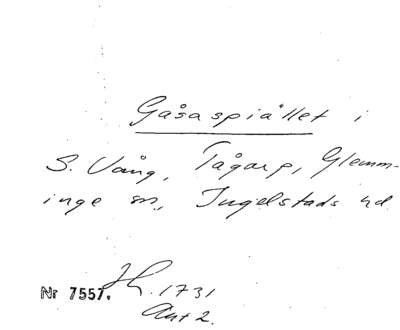 Gåsaspiället i
S. Vång, Tågarp, Glemm-
inge sn., Ingelstads hd.
Nr 7557. H. 1731
Akt 2.